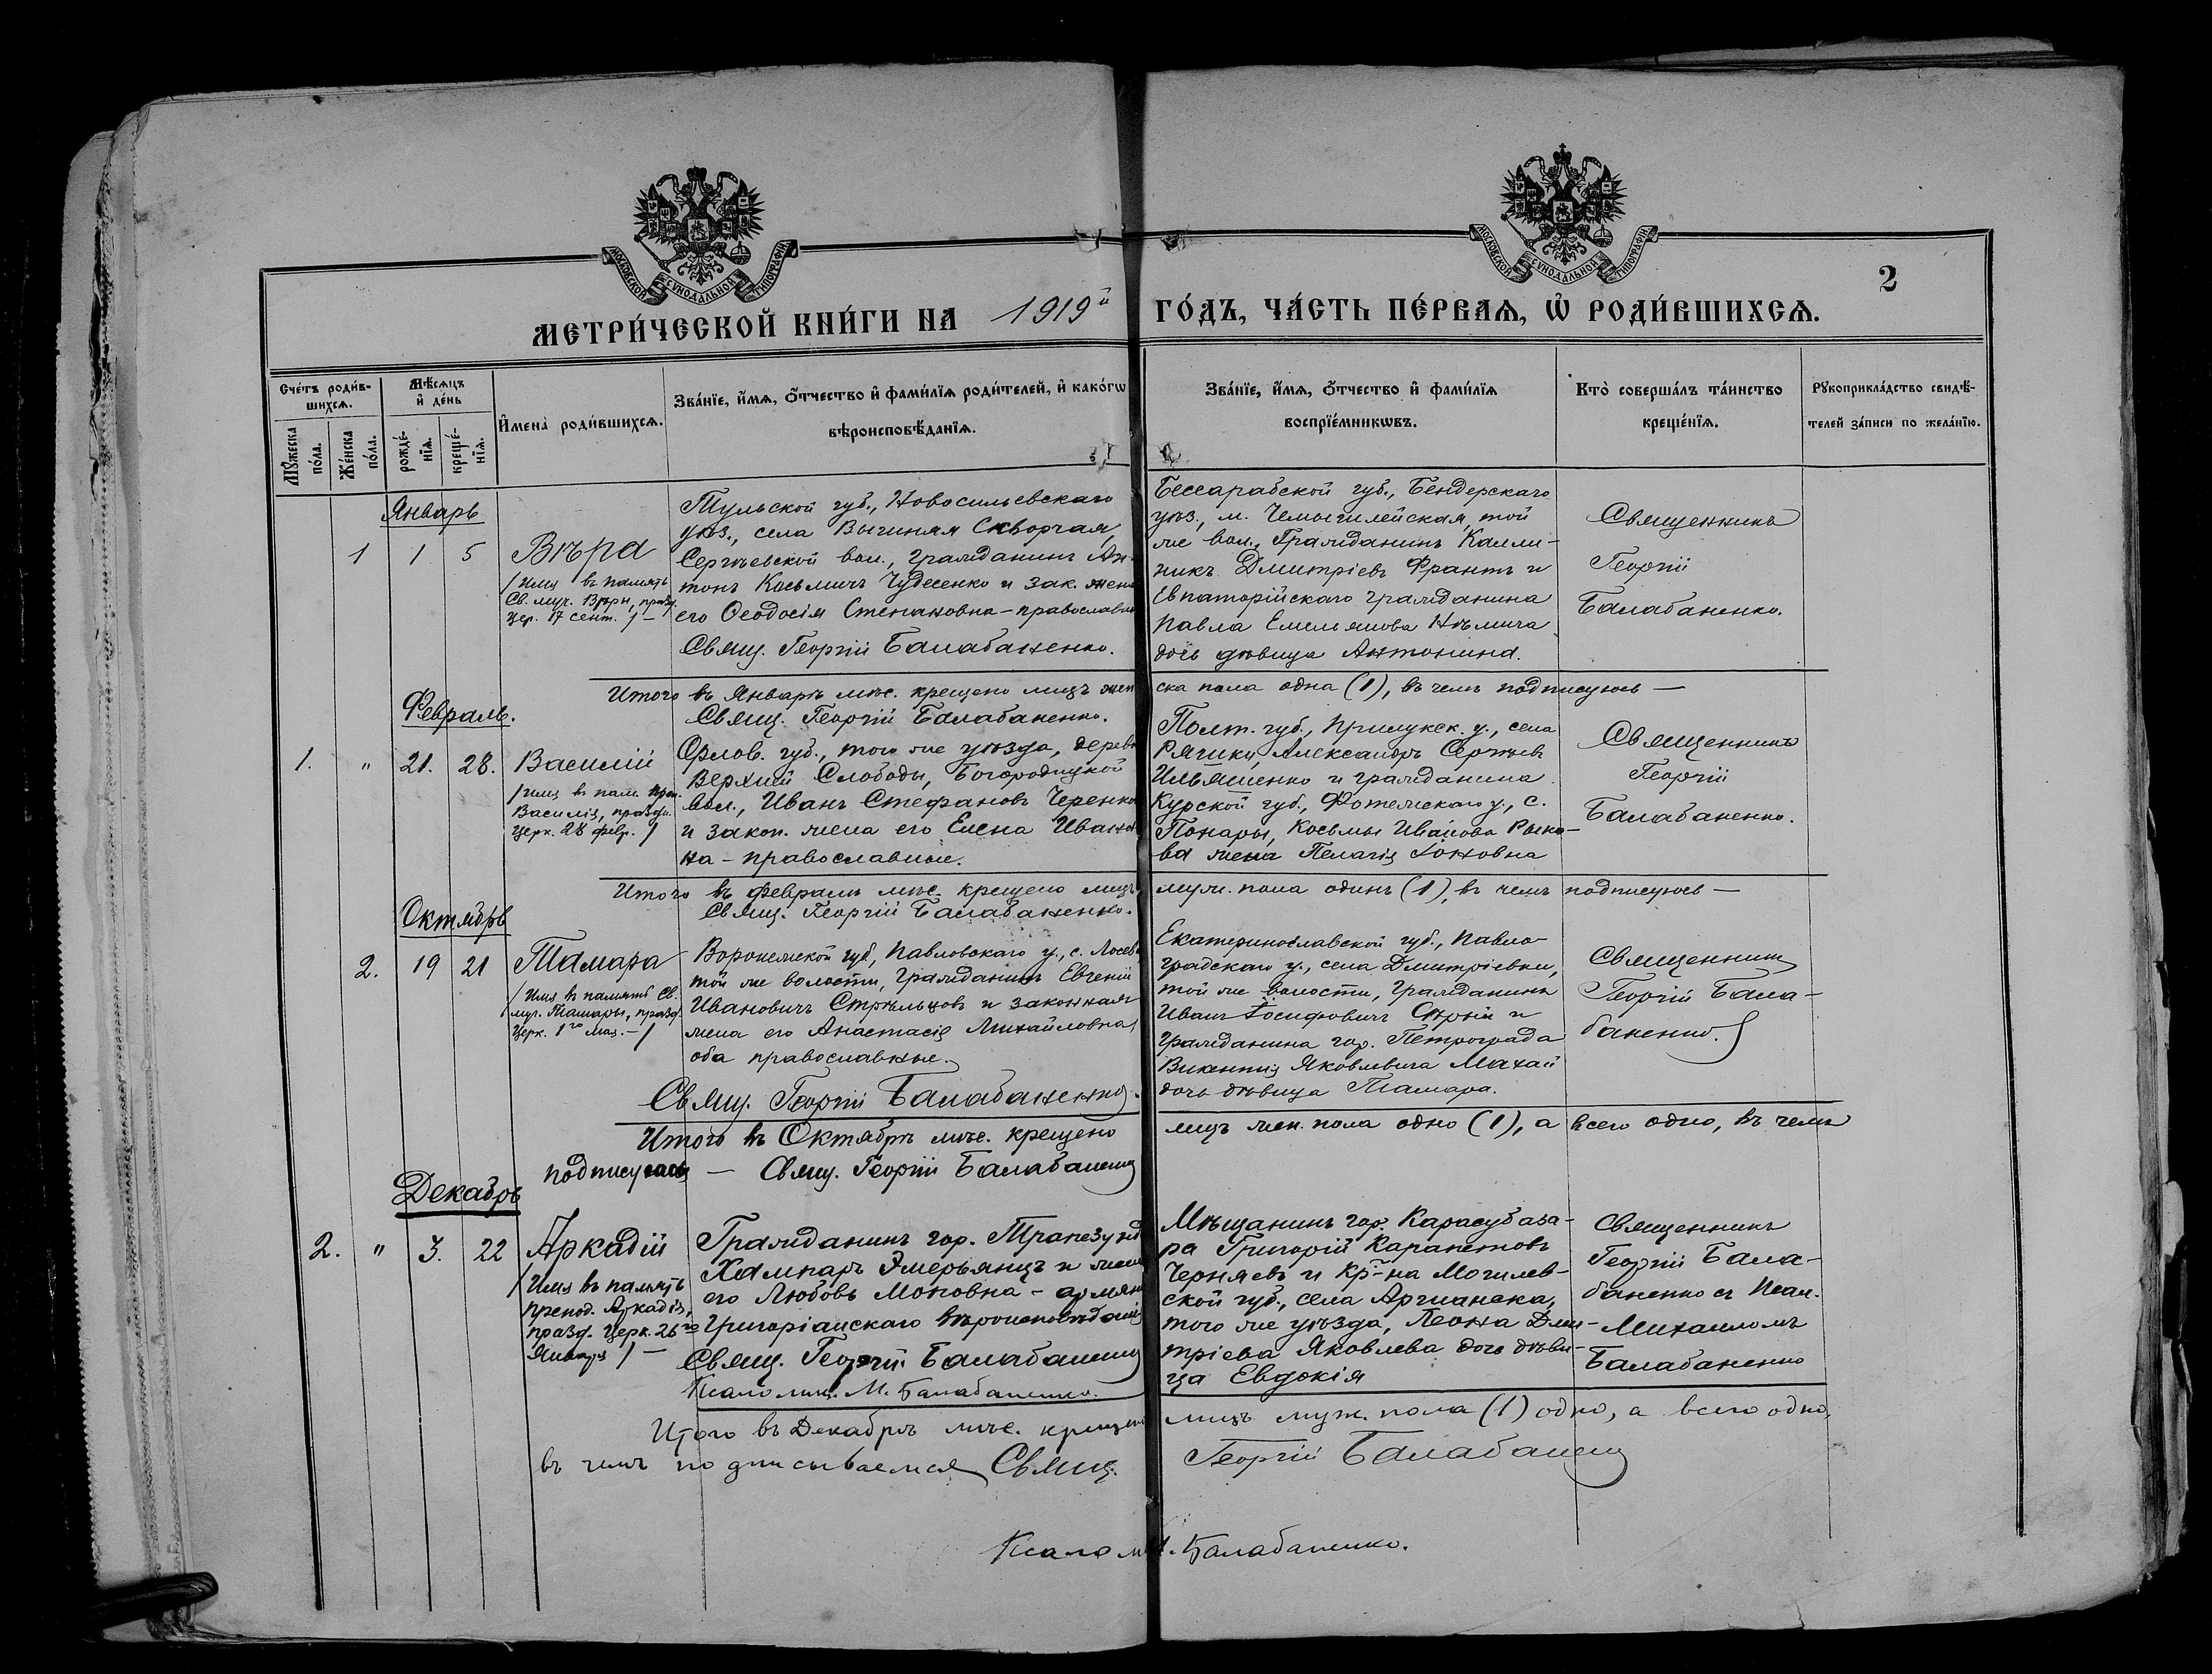 МОСКОВСКОЙ СУНОДАЛЬНОЙ ТИПОГРАФІИ
МОСКОВСКОЙ СУНОДАЛЬНОЙ ТИПОГРАФІИ
2
МЕТРИ́ЧЕСКОЙ КНИ́ГИ НА 1919й ГО́ДЪ, ЧА́СТЬ ПЕ́РВАѦ, Ѽ РОДИ́ВШИХСѦ.
Сче́тъ роди́в-
шихсѧ.
Мꙋжеска
по́ла.
Же́нска
по́ла.
Мѣ́сѧцъ
и҆ де́нь
рожде́-
нїѧ.
креще́-
нїѧ.
И҆мена̀ роди́вшихсѧ.
Зва́нїе, и҆́мѧ, ѻ҆́тчество и҆ фами́лїѧ роди́телей, и҆ како́гѡ
вѣроисповѣ́данїѧ.
Зва́нїе, и҆́мѧ, ѻ҆́тчество и҆ фами́лїѧ
воспрїе́мникѡвъ.
Кто̀ соверша́лъ та́инство
креще́нїѧ.
Рꙋкоприкла́дство свидѣ́-
телей за́писи по жела́нїю.
Январь
1 1 5
Вѣра
/Имя въ память
Св. муч. Вѣры, празд.
Цер. 17 сент. /—
Тульской губ., Новосильевскаго
уѣз., села Скворчая,
Сергѣевской вол., Гражданинъ Ан-
тонъ Косьмичъ Чудесенко и зак. жена
его Ѳеодосія Степановна - православн
Свящ. Георгій Балабаненко.
Бессарабской губ., Бендерскаго
уѣз., м. той
же вол., Гражданинъ Калли-
никъ Дмитріевъ Франтъ и
Евпаторійскаго гражданина
Павла Емельянова Нѣмича
дочь дѣвица Антонина.
Священникъ
Георгій
Балабаненко.
Итого въ Январѣ мѣс. крещено лицъ жен ска пола одна (1), въ чемъ подписуюсь —
Свящ. Георгій Балабаненко.
Февраль.
1. " 21. 28.
Василій
/имя въ пам. преп.
Василія, праздн.
Церк. 28 февр. /
Орлов. губ., того же уѣзда, дерев
Верхній Слободы, Богородицкой
вол., Иванъ Стефановъ Черенко
и закон. жена его Елена Ивано
на - православные.
Полт. губ., Прилукск. у., села
Александръ Сергѣев
Ильяшенко и гражданина
Курской губ., у., с.
Понары, Косьмы Иванова Рыко-
ва жена Пелагія Іоновна
Священникъ
Георгій
Балабаненко.
Итого въ Февралѣ мѣс. крещено лицъ муж. пола одинъ (1), въ чемъ подписуюсь —
Свящ. Георгій Балабаненко.
Октябрь
2. 19 21
Тамара
/Имя въ память Св.
муч. Тамары, празд.
Церк. 1го мая. — /
Воронежской губ, Павловскаго у., с. Лосев
той же волости, Гражданинъ Евгеній
Ивановичъ Стрѣльцовъ и законная
жена его Анастасія Михайловна,
оба православные.
Свящ. Георгій Балабаненко.
Екатеринославской губ., Павло-
градскаго у., села Дмитріевки,
той же волости, Гражданинъ
Иванъ Іосифовичъ Сѣрый и
гражданина гор. Петрограда
Викентія Яковлевича Махай
дочь дѣвица Тамара.
Священникъ
Георгій Бала-
баненко.
Итого въ Октябрѣ мѣс. крещено лицъ жен. пола одно (1), а всего одно, въ чемъ
подписуюсь — Свящ. Георгій Балабаненко
Декабрь
2. " 3. 22
Аркадій
/Имя въ память
препод. Аркадія,
празд. Церк. 26го
Января / —
Гражданинъ гор. Трапезунд
Хампаръ Эмерьянцъ и жена
его Любовь Моновна - армян
григоріанскаго вѣроисповѣданія
Свящ. Георгій Балабаненко
Псаломщ. М. Балабаненко.
Мѣщанинъ гор. Карасубаза-
ра Григорій Карапетовъ
Черняевъ и кр-на Могилев-
ской губ., села
того же уѣзда, Леона Дми-
тріева Яковлева дочь дѣви-
ца Евдокія
Священникъ
Георгій Бала-
баненко съ Псал.
Михаиломъ
Балабаненко
Итого въ Декабрѣ мѣс. крещено лицъ муж. пола (1) одно, а всего одно,
въ чемъ подписываемся Свящ. Георгій Балабаненко
Псаломщ. Балабаненко.